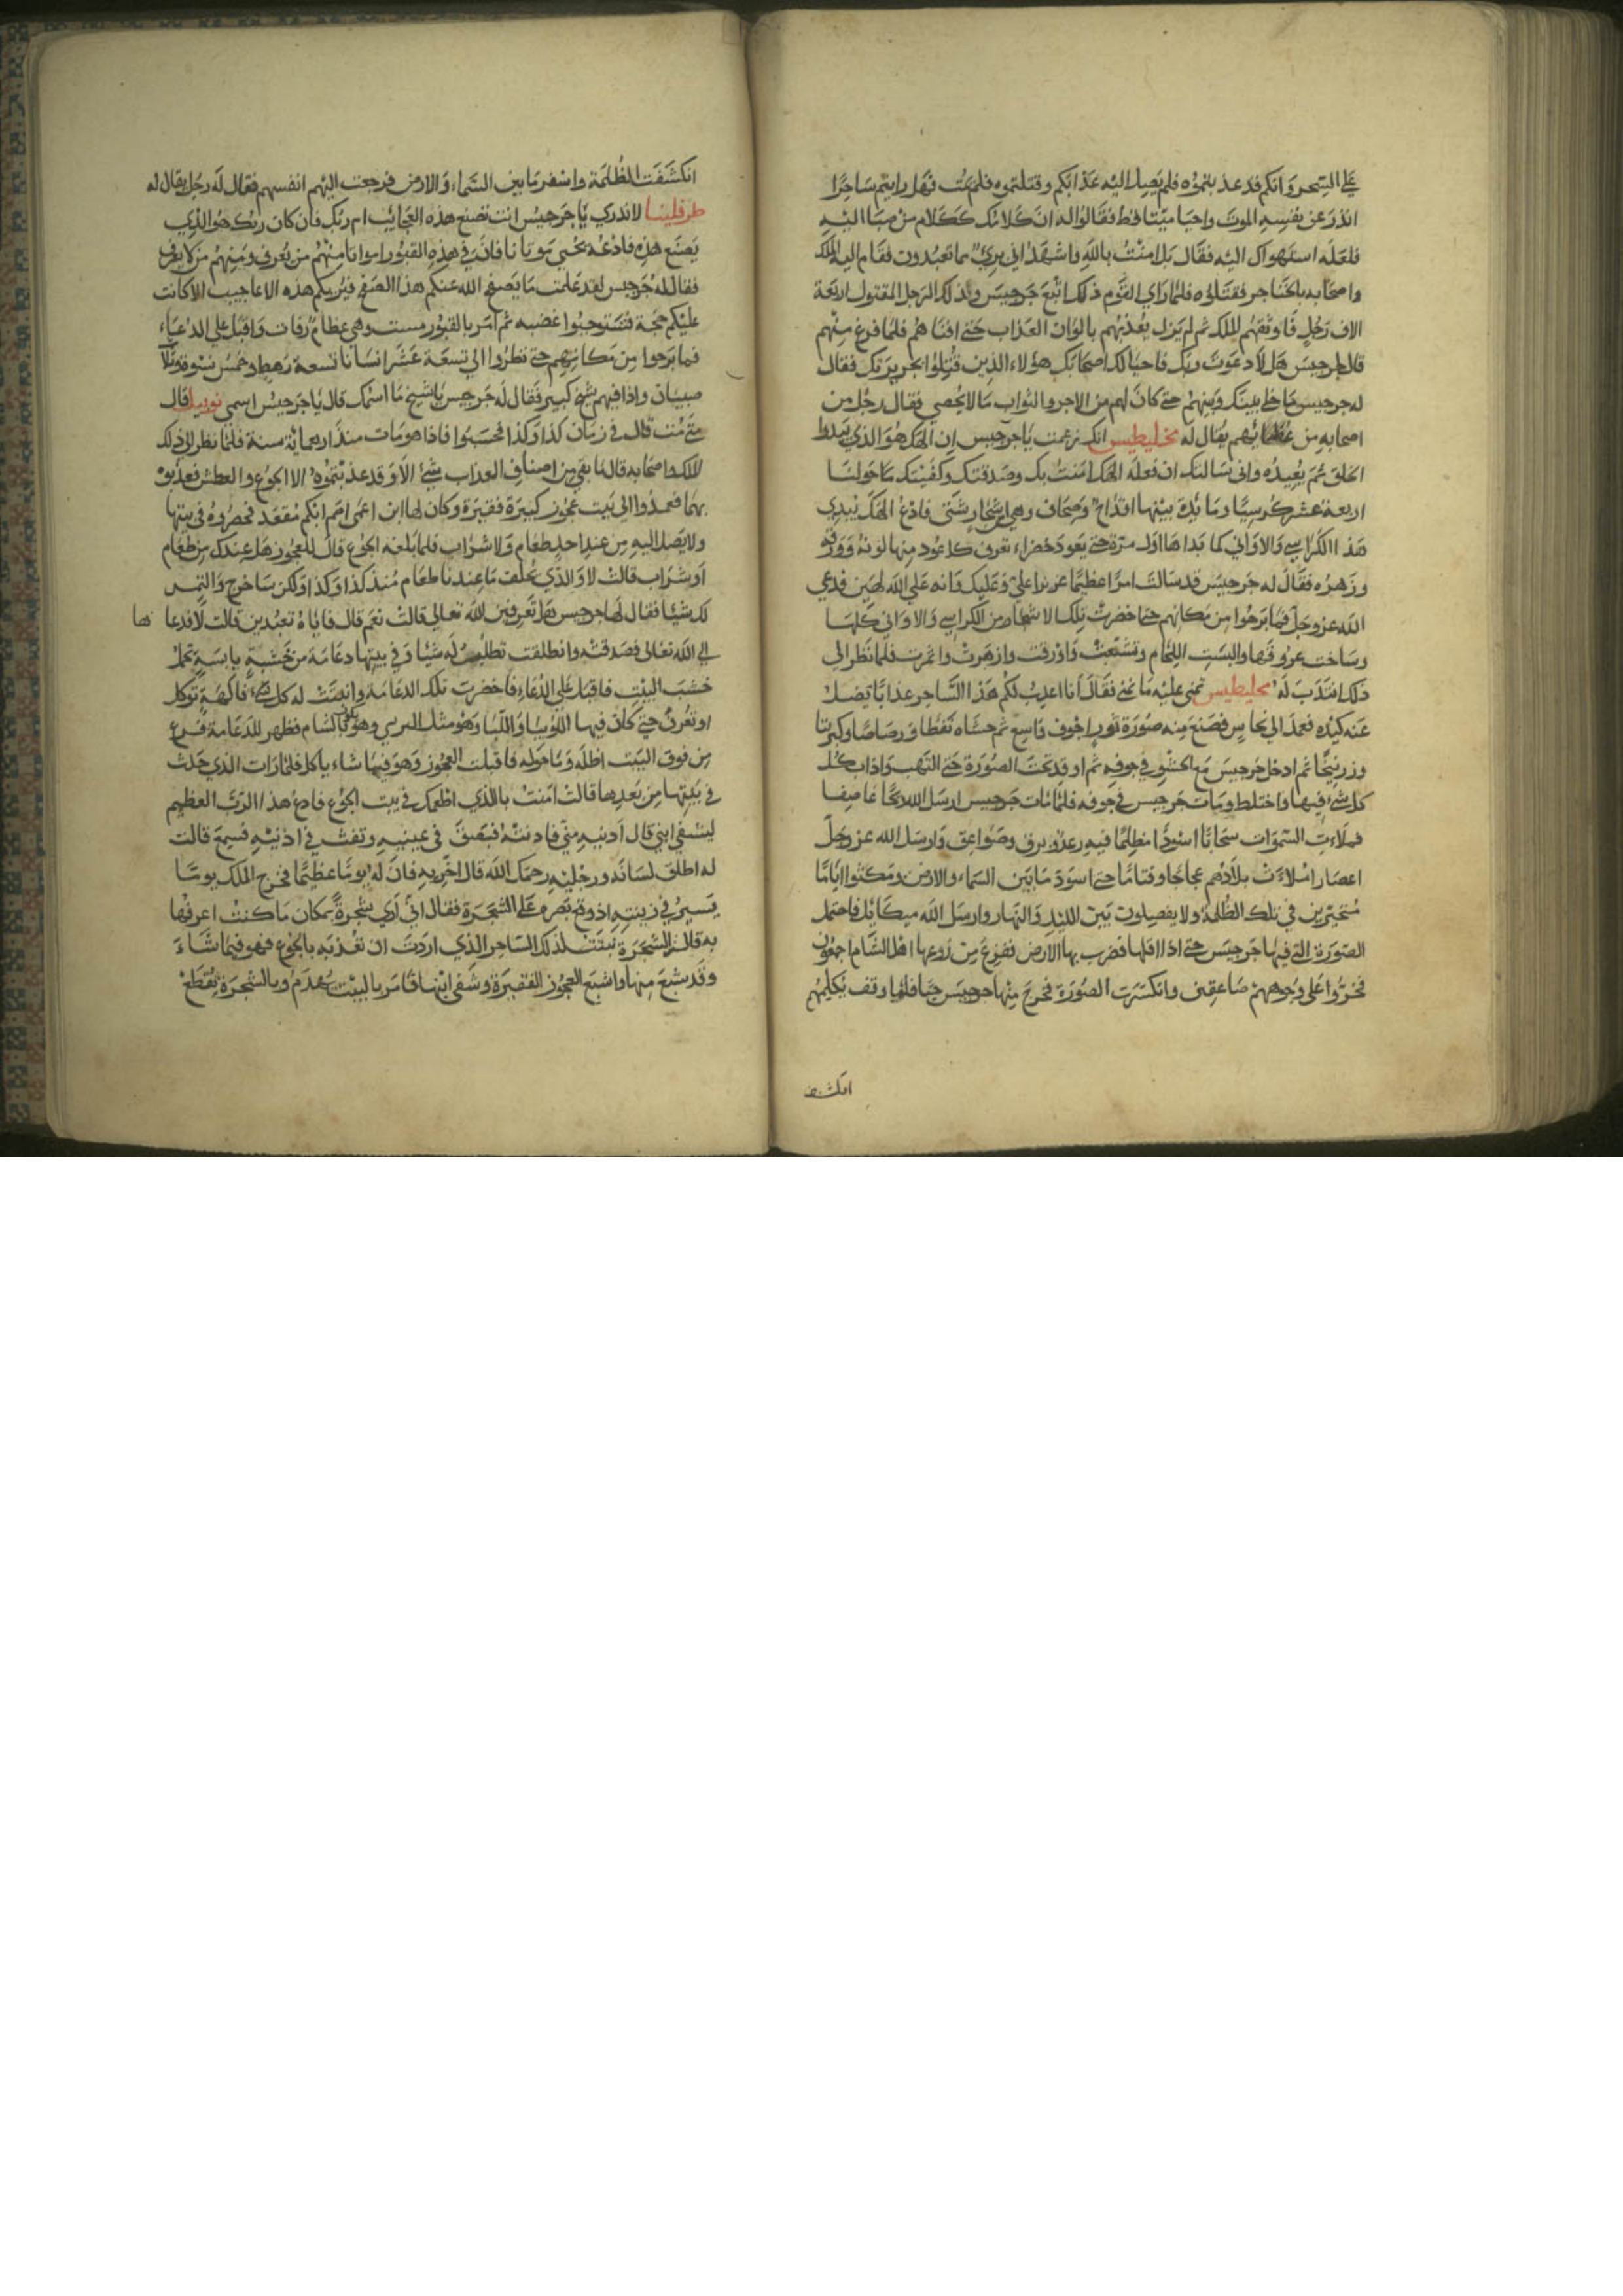 على السحر وانكم قد عذبتموه فلم يصل اليه عذابكم وقتلتموه فلم يمت فهل رايتم ساحرا
اندر عن نفسه الموت واحيا ميتا قط فقالوا له ان كلامك ككلام من صبا اليه
فلعله استهواك اليه فقال بل امنت بالله واشهد اني بريء مما تعبدون فقام اليه الملك
واصحابه بالخناجر فقتلوه فلما راي القوم ذلك اتبع جرجيس وذلك الرجل المقتول اربعة
الاف رجل فاوثقهم الملك ثم لم يزل يعذبهم بالوان العذاب حتى افناهم فلما فرغ منهم
قال لجرجيس هلا دعوت ربك فاحيا لك اصحابك هؤلاء الذين قتلوا بجريرتك فقال
له جرجيس ما خلي بينك وبينهم حتى كان لهم من الاجر والثواب ما لا يحصي فقال رجل من
اصحابه من عظمائهم يقال له مخليطيس انك زعمت يا جرجيس ان الهك هو الذي يبدوا
الخلق ثم يعيده واني سالتك ان فعله الهك امنت بك وصدقتك وكفيتك ما حولنا
اربعة عشر كرسيا ومائدة بينها اقداح وصحاف وهي من اشجار شتى فادع الهك يبدي
هذا الكراسي والاواني كما بداها اول مرة حتى يعود خضراء تعرف كل عود منها لونه وورقه
وزهره فقال له جرجيس قد سالت امرا عظيما عزيزا علي وعليك وانه على الله لهين فدعي
الله عز وجل فما برحوا من مكانهم حتى اخضرت تلك الاشجار من الكراسي والاواني كلها
وساخت عروقها والبست اللحام وتشعبت واورقت وازهرت واثمرت فلما نظر الي
ذلك انتدب له مخليطيس تمني عليه ما تمنى فقال انا اعذب لكم هذا الساحر عذابا يضل
عنه كيده فعمد الي نحاس فصنع منه صورة ثور اجوف واسع ثم حشاه نفطا ورصاصا وكبريتا
وزرنيخا ثم ادخل جرجيس مع الحشو في جوفه ثم اوقد تحت الصورة حتى التهب واذاب كل
كل شيء فيها واختلط ومات جرجيس في جوفه فلما مات جرجيس ارسل الله ريحا عاصفا
فملاءت السموات سحابا اسودا مظلما فيه رعد وبرق وصواعق وارسل الله عز وجل
اعصارا ملاءت بلادهم عجاجا وقتاما حتى اسود ما بين السماء والارض ومكثوا اياما
متحيرين في تلك الظلمة ولا يفصلون بين الليل والنهار وارسل الله ميكائيل فاحتمل
الصورة التي فيها جرجيس حتى اذا اقلها ضرب بها الارض ففزع من روعها اهل الشام اجمعون
فخروا على وجوههم صاعقين وانكسرت الصورة فخرج منها جرجيس حيا فلما وقف يكلمهم
انكشف
انكشفت الظلمة واسفر ما بين السماء والارض فرجعت اليهم انفسهم فقال له رجل يقال له
طرفلينا لا ندري يا جرجيس انت تصنع هذه العجائب ام ربك فان كان ربك هو الذي
يصنع هذه فادعه يحيي موتانا فان في هذه القبور امواتا منهم من يعرف ومنهم من لا يعرف
فقال له جرجيس لقد علمت ما يصفح الله عنكم هذا الصفح فيريكم هذه الاعاجيب الا كانت
عليكم حجة فتستوجبوا غضبه ثم امر بالقبور وهي عظام رفات واقبل على الدعاء
فما برحوا من مكانهم حتى نظروا الى تسعة عشر انسانا تسعة رهط وخمس نسوة وثلاثة
صبيان واذا فيهم شيخ كبير فقال له جرجيس يا شيخ ما اسمك قال يا جرجيس اسمي نوبيل قال
متى مت قال في زمان كذا وكذا فحسبوا فاذا هو مات منذ اربعمائة سنة فلما نظر الى ذلك
الملك واصحابه قال ما بقي من اصناف العذاب شيء الا وقد عذبتموه الا الجوع والعطش فعذبوه
بهما فعمدوا الى بيت عجوز كبيرة فقيرة وكان لها ابن اعمى اصم ابكم مقعد فحصروه في بيتها
ولا يصل اليه من عند احد طعام ولا شراب فلما بلغه الجوع قال للعجوز هل عندك من طعام
او شراب قالت لا والذي يحلف ما عندنا طعام منذ كذا وكذا ولكن ساخرج والتمس
لك شيئا فقال لها جرجيس هل تعرفين الله تعالى قالت نعم قال فاياه تعبدين قالت لا فدعا ها
الى الله تعالى فصدقته وانطلقت تطلب له شيا وفي بيتها دعامة من خشبة يابسة تحمل
خشب البيت فاقبل على الدعاء فاخضرت تلك الدعامة وانبتت له كل شيء فاكهة توكل
او تعرف حتى كان فيها اللوبيا واللبا وهو مثل البردي وهو يكون بالشام فظهر للدعامة فرع
من فوق البيت اظله وما حوله فاقبلت العجوز وهو فيما شاء ياكل فلما رات الذي حدث
في بيتها من بعدها قالت امنت بالذي اطعمك في بيت الجوع فادع هذا الرب العظيم
ليشفي ابني قال ادنيه مني فادنته فبصق في عينيه ونفث في اذنيه فسمع قالت
له اطلق لسانه ورجليه رحمك الله قال اخريه فان له يوما عظيما فخرج الملك يوما
يسير في زينته اذ وقع بصره على الشجرة فقال اني اري شجرة بمكان ما كنت اعرفها
به قالوا الشجرة نبتت لذلك الساحر الذي اردت ان تعذبه بالجوع فهو فيما شاء
وقد شبع منها واشبع العجوز الفقيرة وشفى ابنها فامر بالبيت يهدم وبالشجرة تقطع